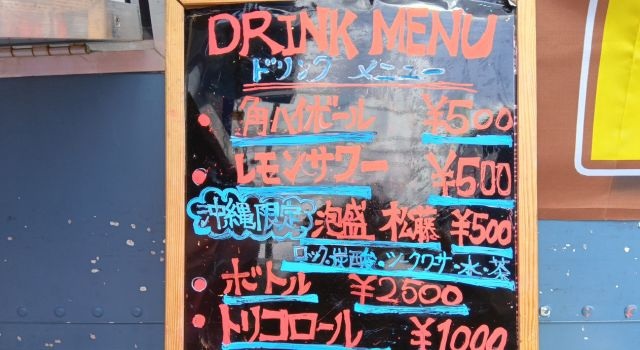 DRINK MENU
ドリンク メニュー
角ハイボール ¥500
レモンサワー ¥500
沖縄限定 泡盛 松藤 ¥500
ロック・炭酸・シークワサ・水・茶
ボトル ¥2500
トリコロール ¥1000